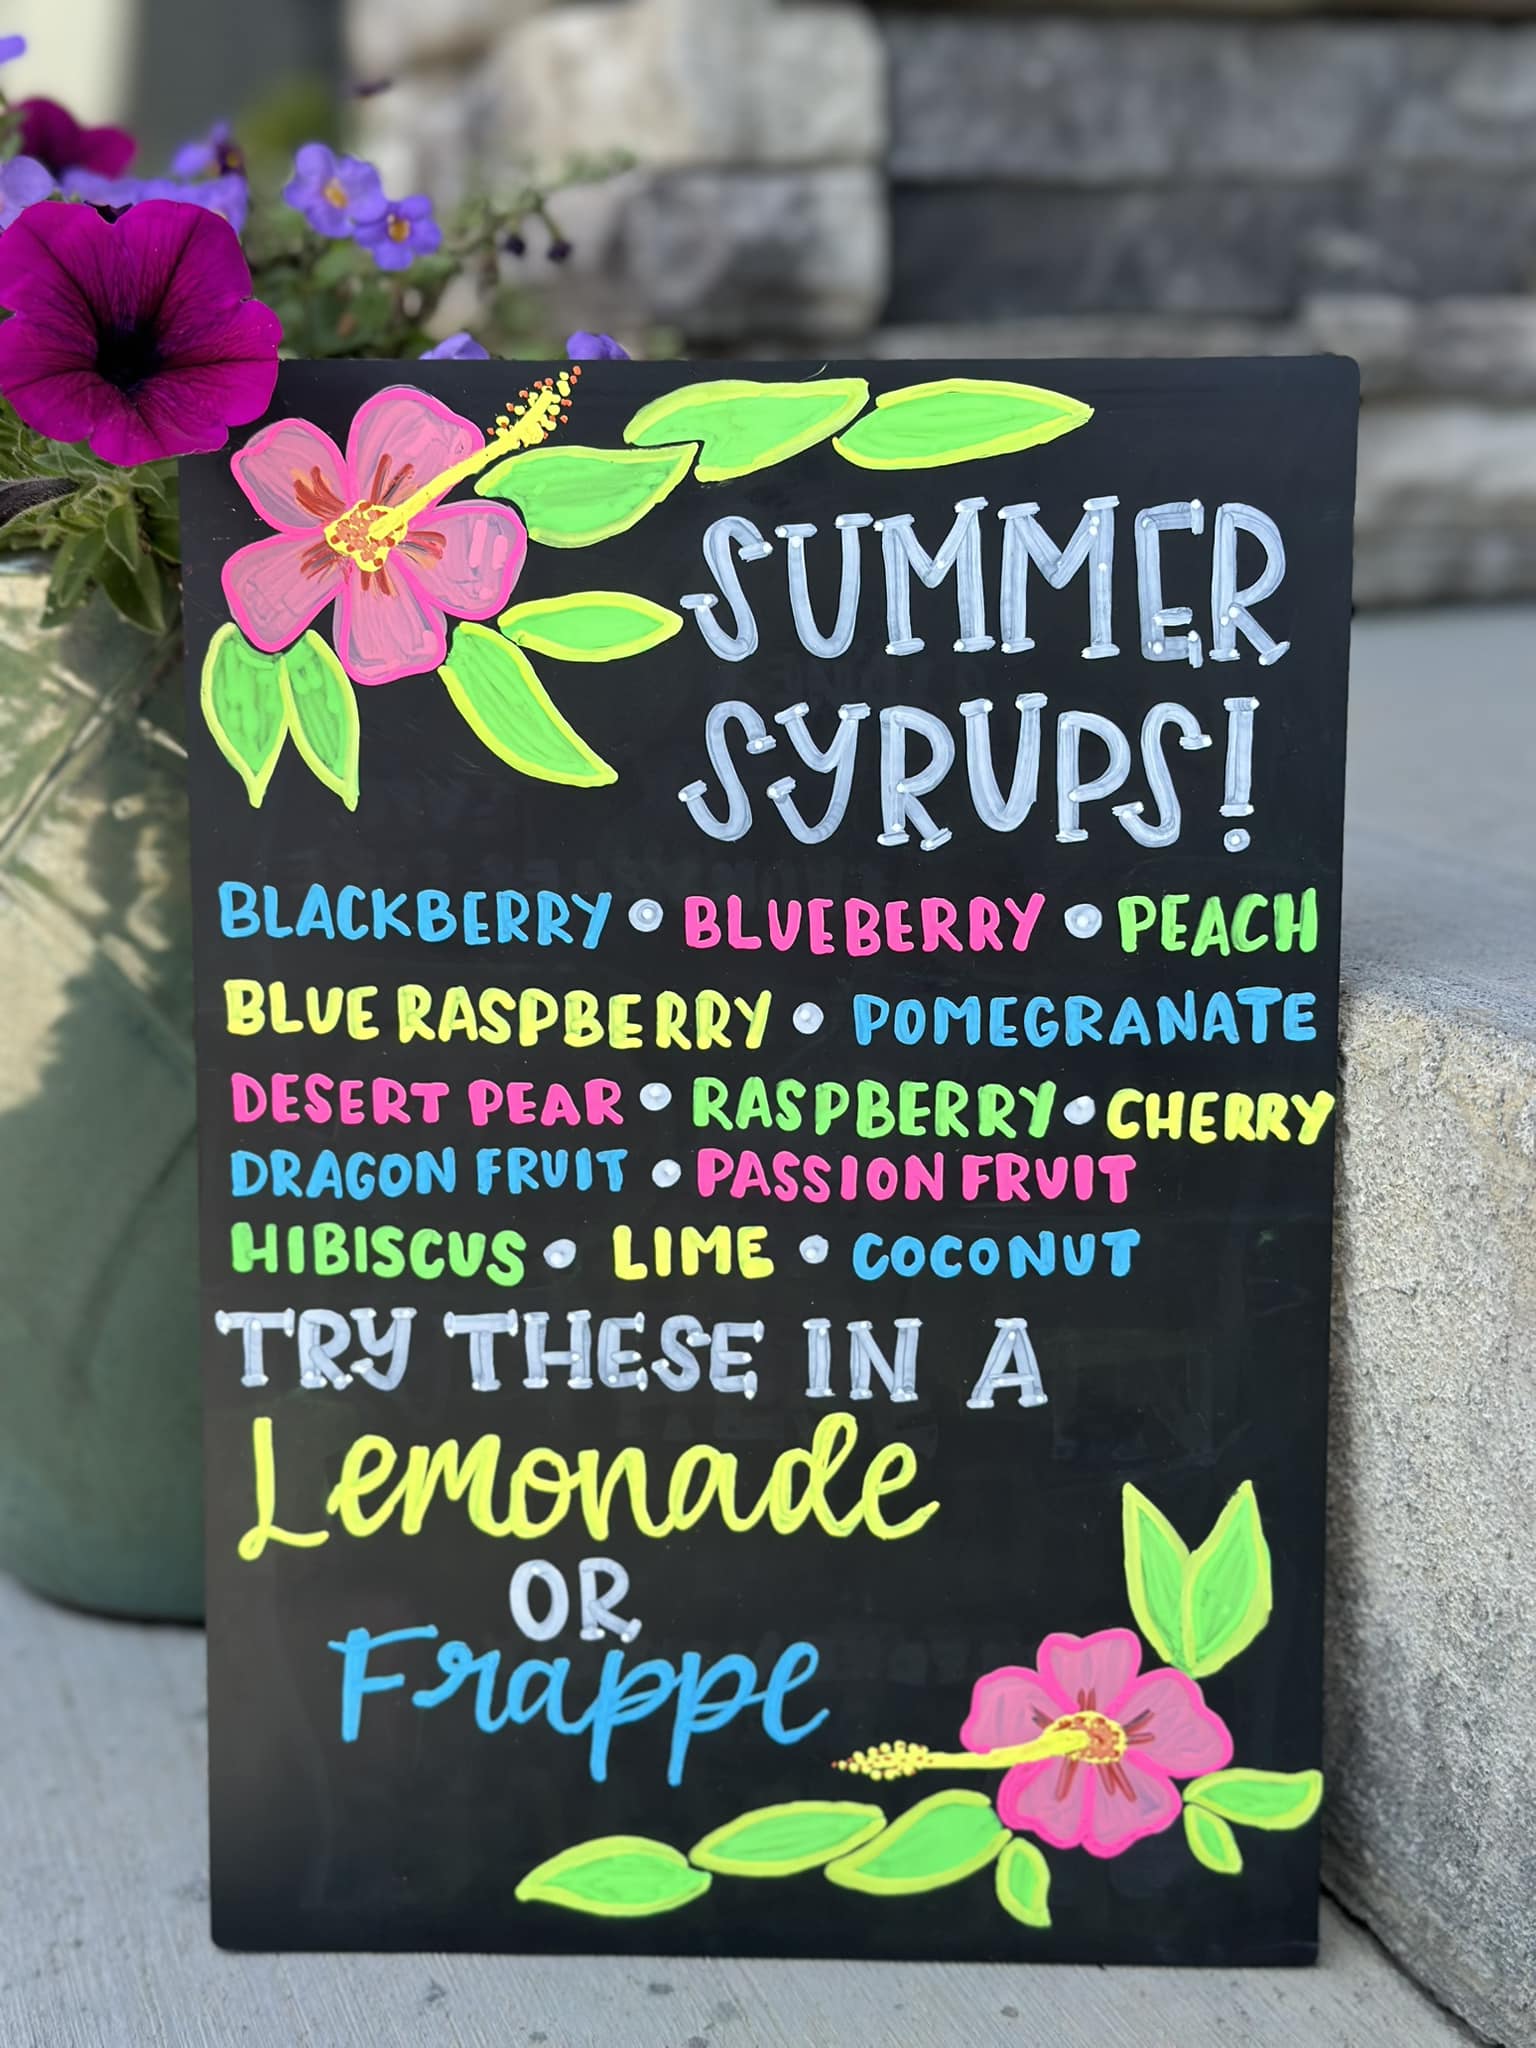 SUMMER
SYRUPS!
BLACKBERRY • BLUEBERRY • PEACH
BLUE RASPBERRY • POMEGRANATE
DESERT PEAR • RASPBERRY • CHERRY
DRAGON FRUIT • PASSION FRUIT
HIBISCUS • LIME • COCONUT
TRY THESE IN A
Lemonade
OR
Frappe